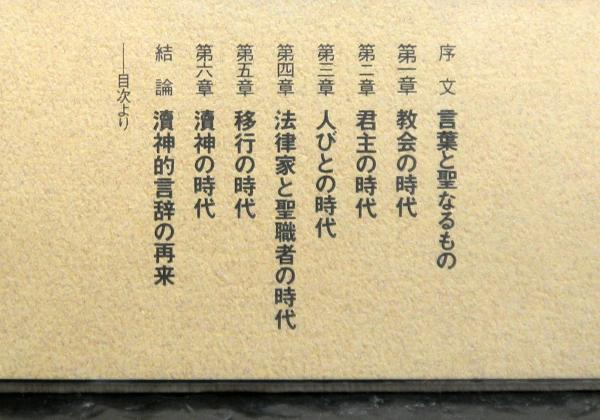 序文 言葉と聖なるもの
第一章 教会の時代
第二章 君主の時代
第三章 人びとの時代
第四章 法律家と聖職者の時代
第五章 移行の時代
第六章 瀆神の時代
結論 瀆神的言辞の再来
——目次より